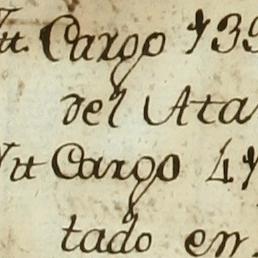 Cargo 139
del Ata
Cargo 4
tado en